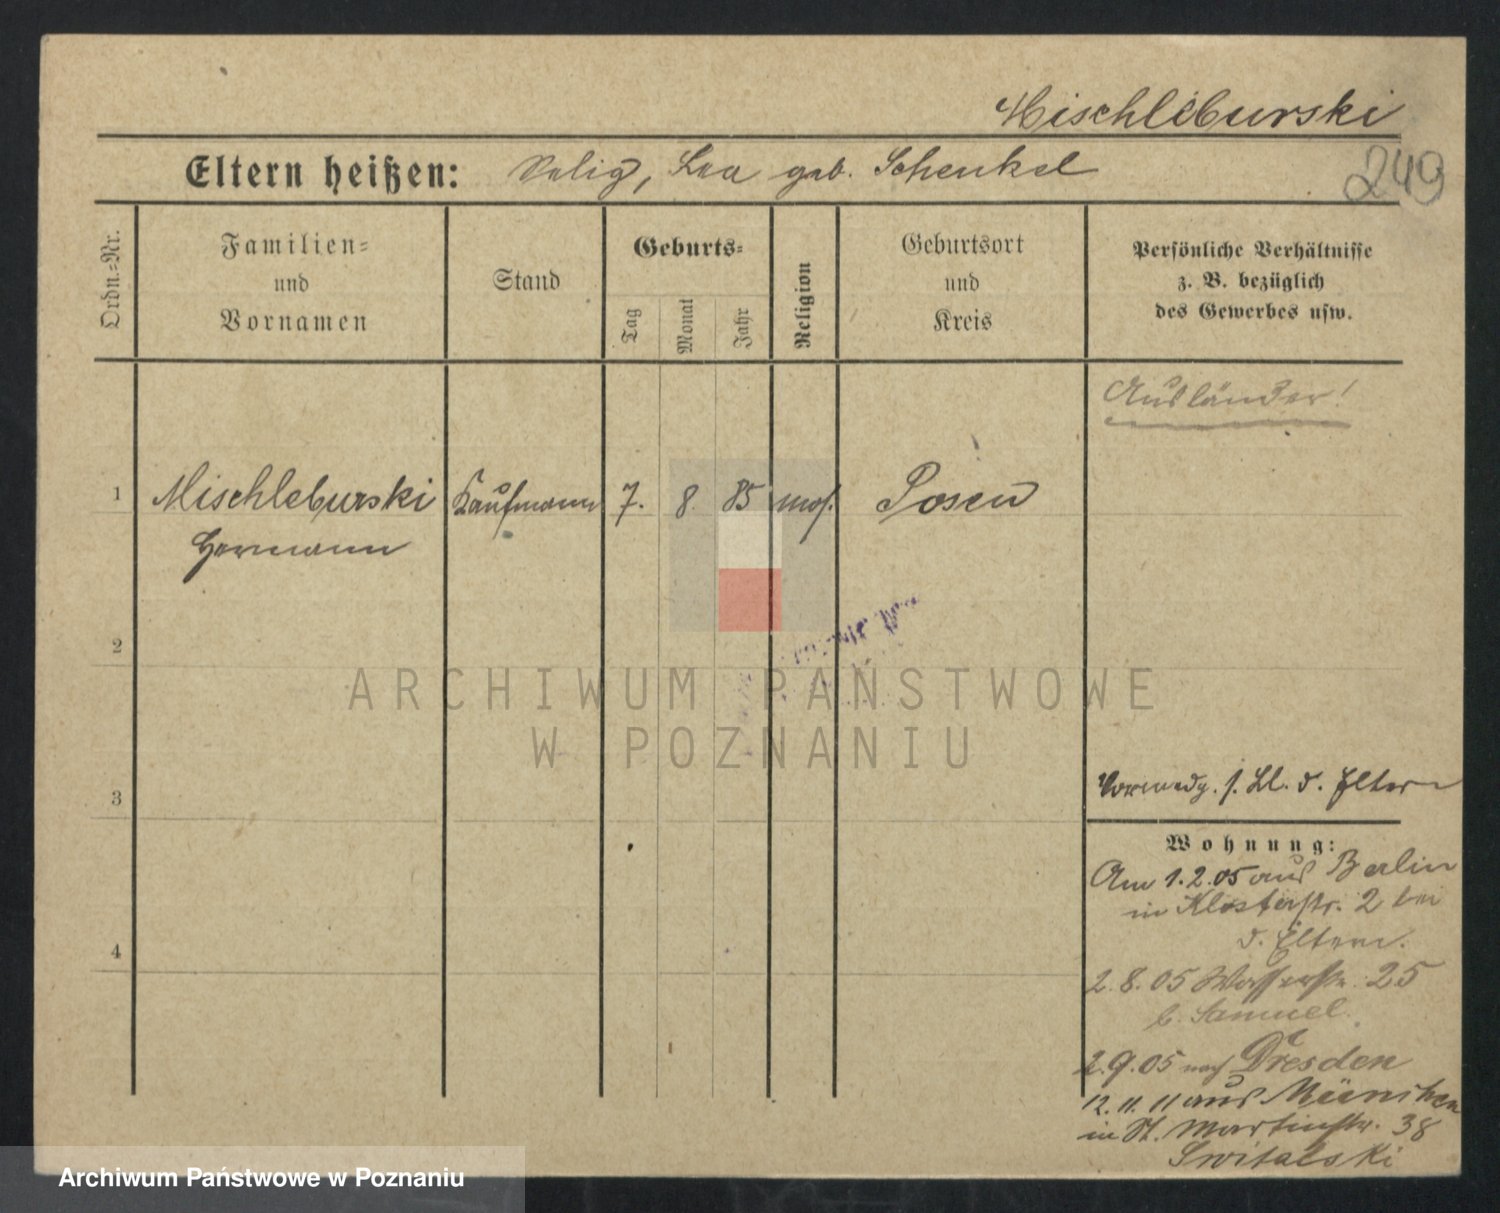 Mischleburski
249
Eltern heißen: Selig, Lea geb. Schenkel
Ordn.=Nr.
Familien=
und
Vornamen
Stand
Geburts=
Tag
Monat
Jahr
Religion
Geburtsort
und
Kreis
Persönliche Verhältnisse
z. B. bezüglich
des Gewerbes usw.
Ausländer!
1 Mischleburski Kaufmann 7. 8. 85 mos. Posen
Hermann
2
ARCHIWUM PAŃSTWOWE
W POZNANIU
3
d. Eltern
Wohnung:
Am 1.2.05 aus Berlin
in Klosterstr. 2 bei
d. Eltern.
2.8.05 Wasserstr. 25
b. Samuel.
2.9.05 nach Dresden
12.11.11 aus München
in St. Martinstr. 38
Switalski
4
Archiwum Państwowe w Poznaniu